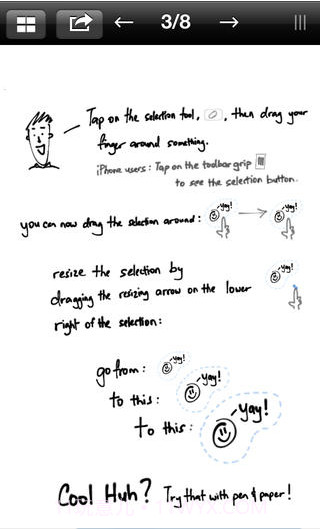 3/8
Tap on the selection tool, , then drag your
finger around something.
iPhone users: Tap on the toolbar grip
to see the selection button.
you can now drag the selection around:
yay!
yay!
resize the selection by
dragging the resizing arrow on the lower
right of the selection:
yay!
go from:
yay!
to this:
yay!
to this:
yay!
Cool Huh? Try that with pen & paper!